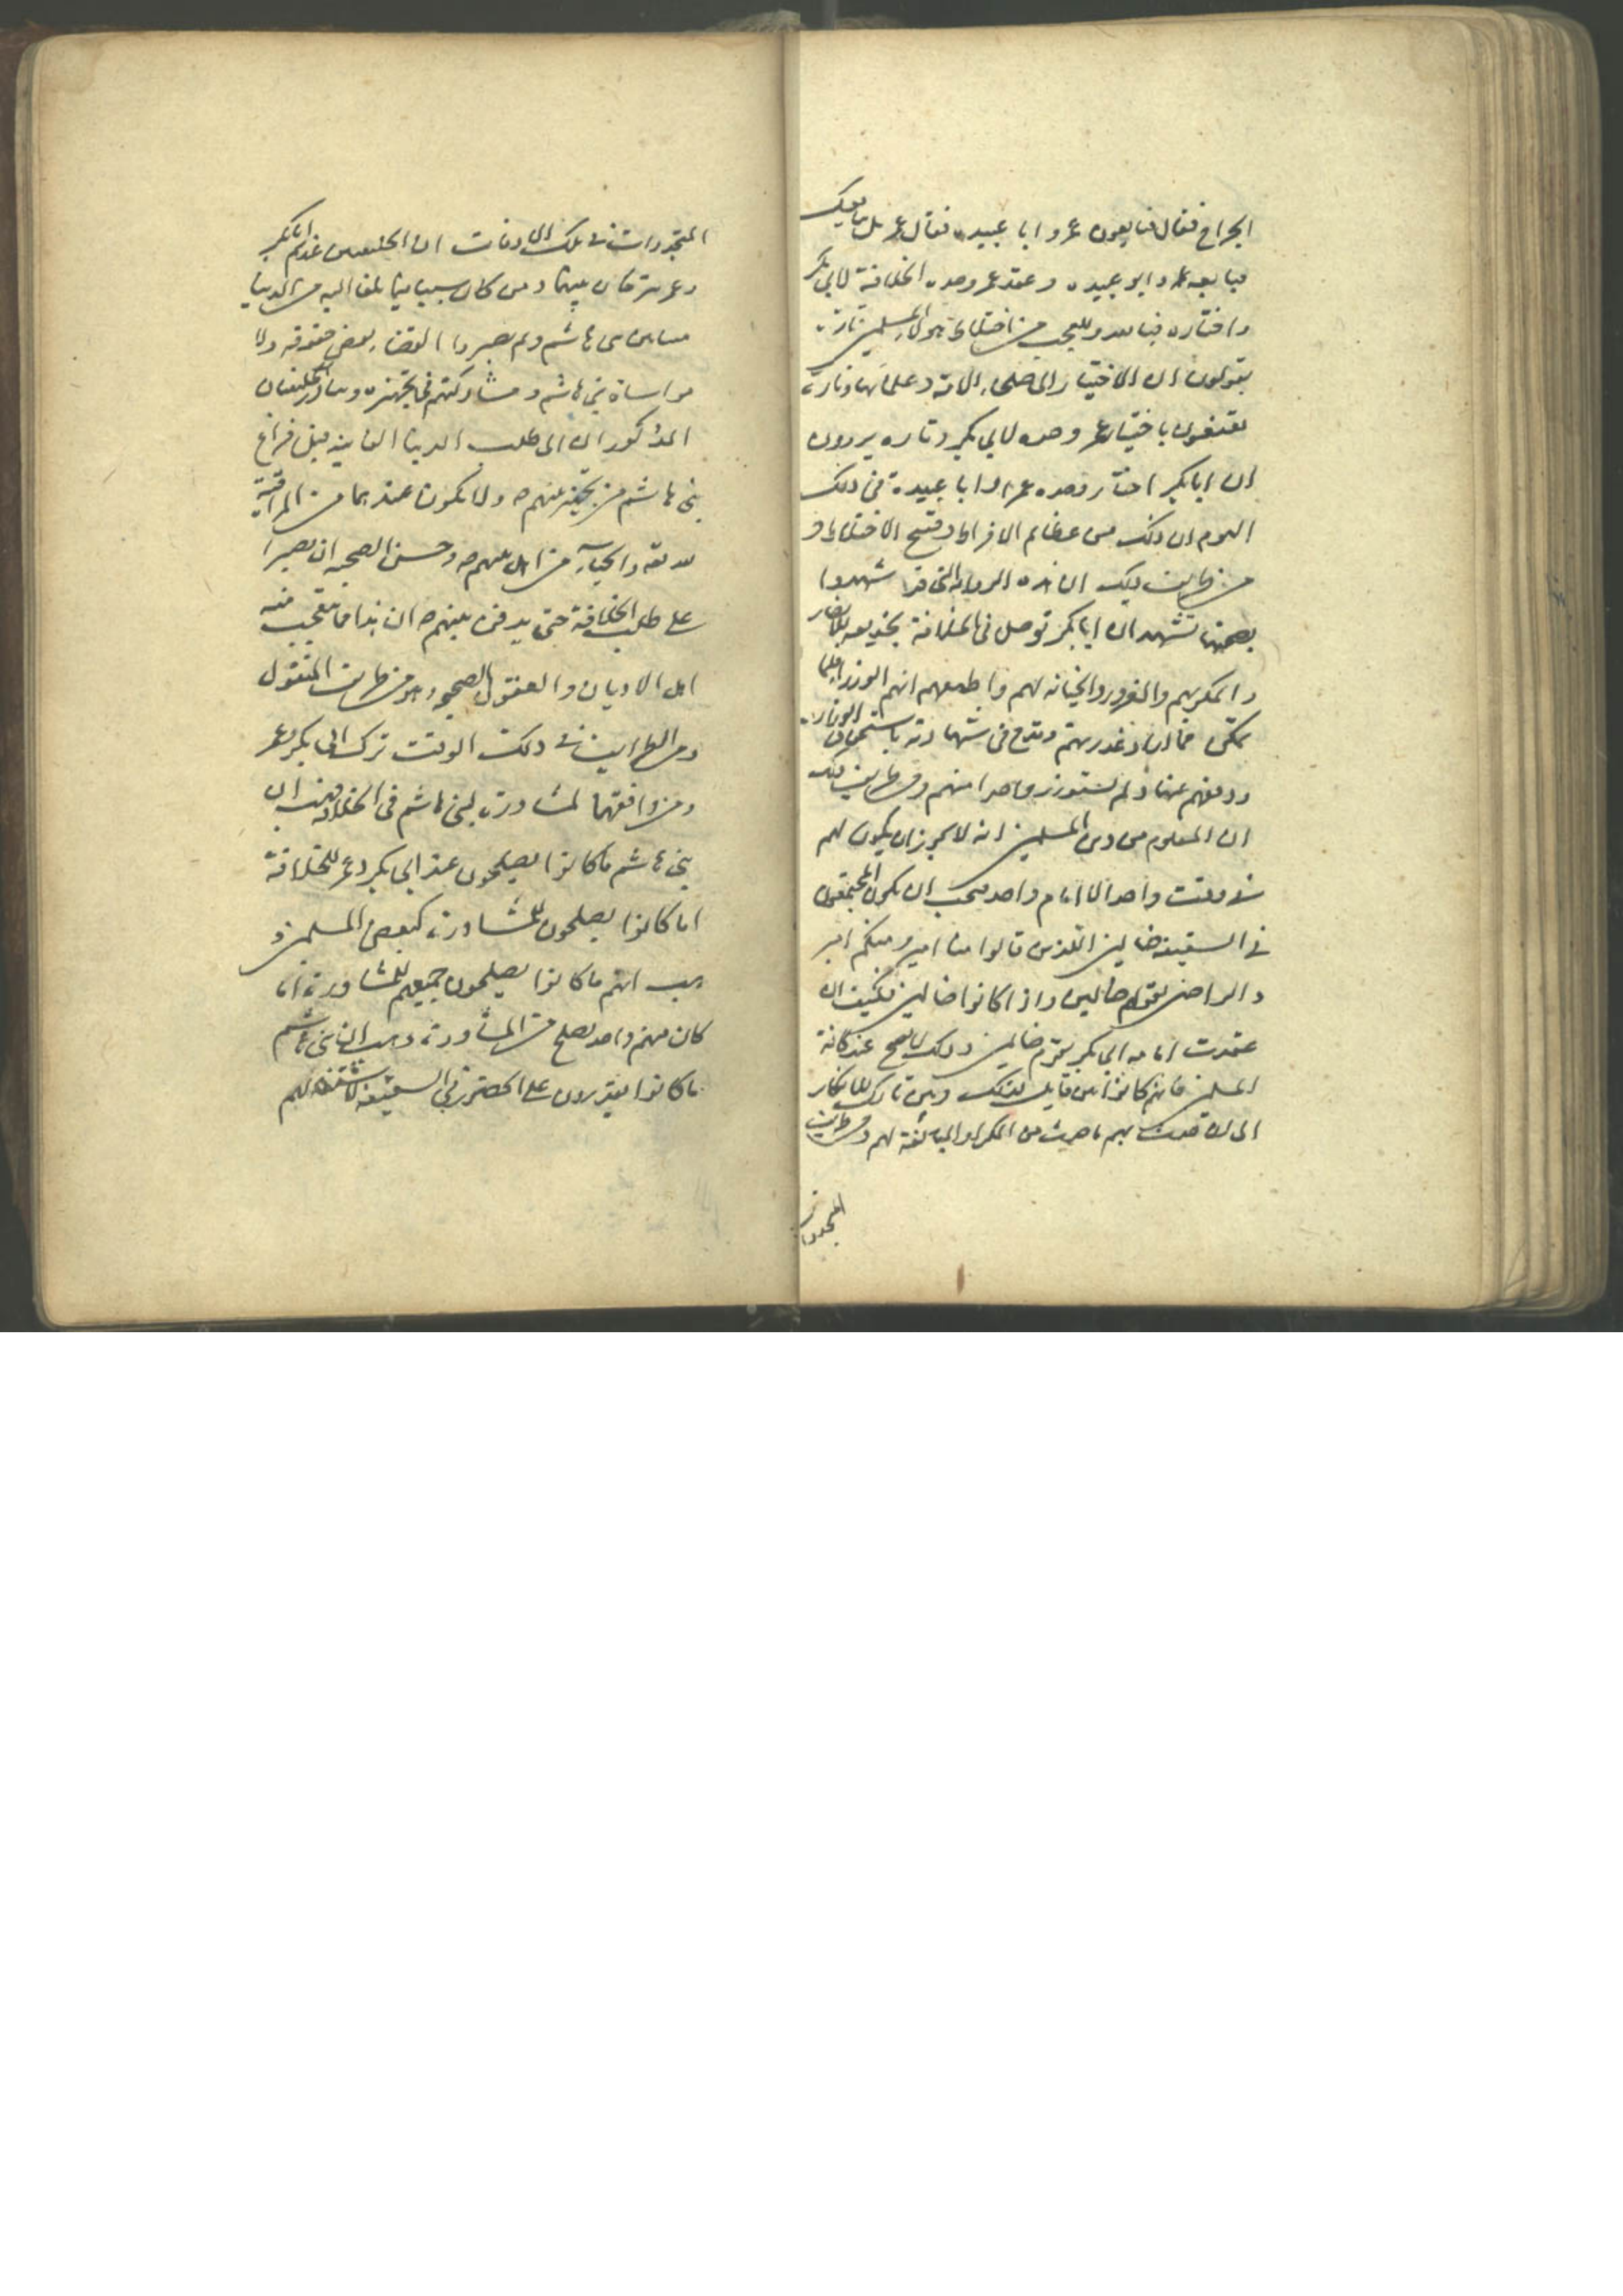 الجراح فقال فبايعون عمر و ابا عبيده فقال عمر بل نبايعك
فبايعه عمر و ابو عبيده و عقد عمر وحده الخلافة لابي بكر
و اختاره فبايعه و للعجب من اختلاط هولاء المسلمين تارة
يقولون ان الاختيار الى صلحاء الامة و علمائها و تارة
يقنعون باختيار عمر وحده لابي بكر و تاره يروون
ان ابا بكر اختار وحده عمر او ابا عبيدة في ذلك
اليوم ان ذلك من عظايم الافراط و قبح الاختلاط و
من طرايف ذلك ان هذه الرواية التي قد شهدوا
بصحتها تشهد ان ابا بكر توصل في الخلافة بخديعه للانصار
و المكر بهم و الغرور و الخيانه لهم و اطمعهم انهم الوزراء فلما
تمكن خان و غدر بهم و قدح في شهادته باستحقاق الوزارة
و دفعهم عنها و لم يستوزر واحدا منهم و من طرايف ذلك
ان المعلوم من دين المسلمين انه لا يجوز ان يكون لهم
في وقت واحد الا امام واحد فيجب ان يكون المجتمعون
في السقيفة ضالين الذين قالوا منا امير و منكم امير
و الراضي بقولهم ضالين و اذا كانوا ضالين فكيف ان
عقدت امامه ابي بكر بقوم ضالين و ذلك لا يصح عند كافة
المسلمين فانهم كانوا بين قايل لذلك و بين تارك للانكار
الى ان حدث بهم ما حدث من المكر او المبالغة لهم و من طرايف
المتجددات في تلك الاوقات ان الخليفتين عندهم ابا بكر
و عمر من كان بينهما و من كان سببا فيما بلغا اليه من الدنيا
بني هاشم و لم يصبروا القضاء بعض حقوقه و لا
مواساة بني هاشم و مشاركتهم في تجهيزه و يبادر الخليفتان
المذكوران الى طلب الدنيا الفانية قبل فراغ
بني هاشم من تجهيز نبيهم ص و لا يكون عندهما من المراقبة
لله تعه و الحياء من اهل نبيهم ص و حسن الصحبه ان يصبرا
على طلب الخلافة حتى يدفن نبيهم ص ان هذا مما يتعجب منه
اهل الاديان و العقول الصحيحة و هو من طرايف المنقول
و من الطرايف في ذلك الوقت ترك ابي بكر و عمر
و من وافقهما لمشاورة بني هاشم في الخلافة فهب ان
بني هاشم ما كانوا يصلحون عند ابي بكر و عمر للخلافة
اما كانوا يصلحون للمشاورة كبعض المسلمين و
هب انهم ما كانوا يصلحون جميعهم للمشاورة اما
كان منهم واحد يصلح من المشاورة و هب ان بني هاشم
ما كانوا يقدرون على الحضور في السقيفة لاشتغالهم
المتجددات